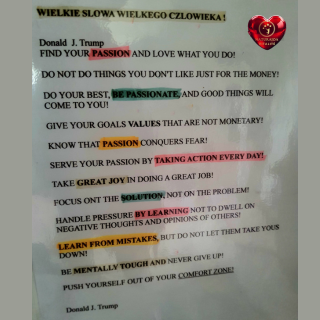 WIELKIE SLOWA WIELKEGO CZLOWIEKA !
Donald J. Trump
FIND YOUR PASSION AND LOVE WHAT YOU DO!
DO NOT DO THINGS YOU DON'T LIKE JUST FOR THE MONEY!
DO YOUR BEST, BE PASSIONATE, AND GOOD THINGS WILL
COME TO YOU!
GIVE YOUR GOALS VALUES THAT ARE NOT MONETARY!
KNOW THAT PASSION CONQUERS FEAR!
SERVE YOUR PASSION BY TAKING ACTION EVERY DAY!
TAKE GREAT JOY IN DOING A GREAT JOB!
FOCUS ONT THE SOLUTION, NOT ON THE PROBLEM!
HANDLE PRESSURE BY LEARNING NOT TO DWELL ON
NEGATIVE THOUGHTS AND OPINIONS OF OTHERS!
LEARN FROM MISTAKES, BUT DO NOT LET THEM TAKE YOUS
DOWN!
BE MENTALLY TOUGH AND NEVER GIVE UP!
PUSH YOURSELF OUT OF YOUR COMFORT ZONE!
Donald J. Trump